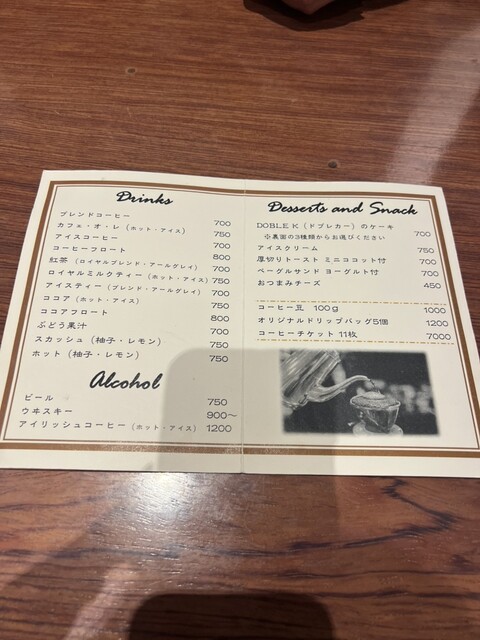 Drinks
ブレンドコーヒー 700
カフェ・オ・レ (ホット・アイス) 750
アイスコーヒー 700
コーヒーフロート 800
紅茶 (ロイヤルブレンド・アールグレイ) 700
ロイヤルミルクティー (ホット・アイス) 750
アイスティー (ブレンド・アールグレイ) 700
ココア (ホット・アイス) 750
ココアフロート 800
ぶどう果汁 700
スカッシュ (柚子・レモン) 750
ホット (柚子・レモン) 750
Alcohol
ビール 750
ウヰスキー 900～
アイリッシュコーヒー (ホット・アイス) 1200
Desserts and Snack
DOBLE K (ドブレカー) のケーキ 700
※裏面の3種類からお選びください
アイスクリーム 750
厚切りトースト ミニココット付 700
ベーグルサンド ヨーグルト付 700
おつまみチーズ 450
コーヒー豆 100g 1000
オリジナルドリップバッグ5個 1200
コーヒーチケット 11枚 7000